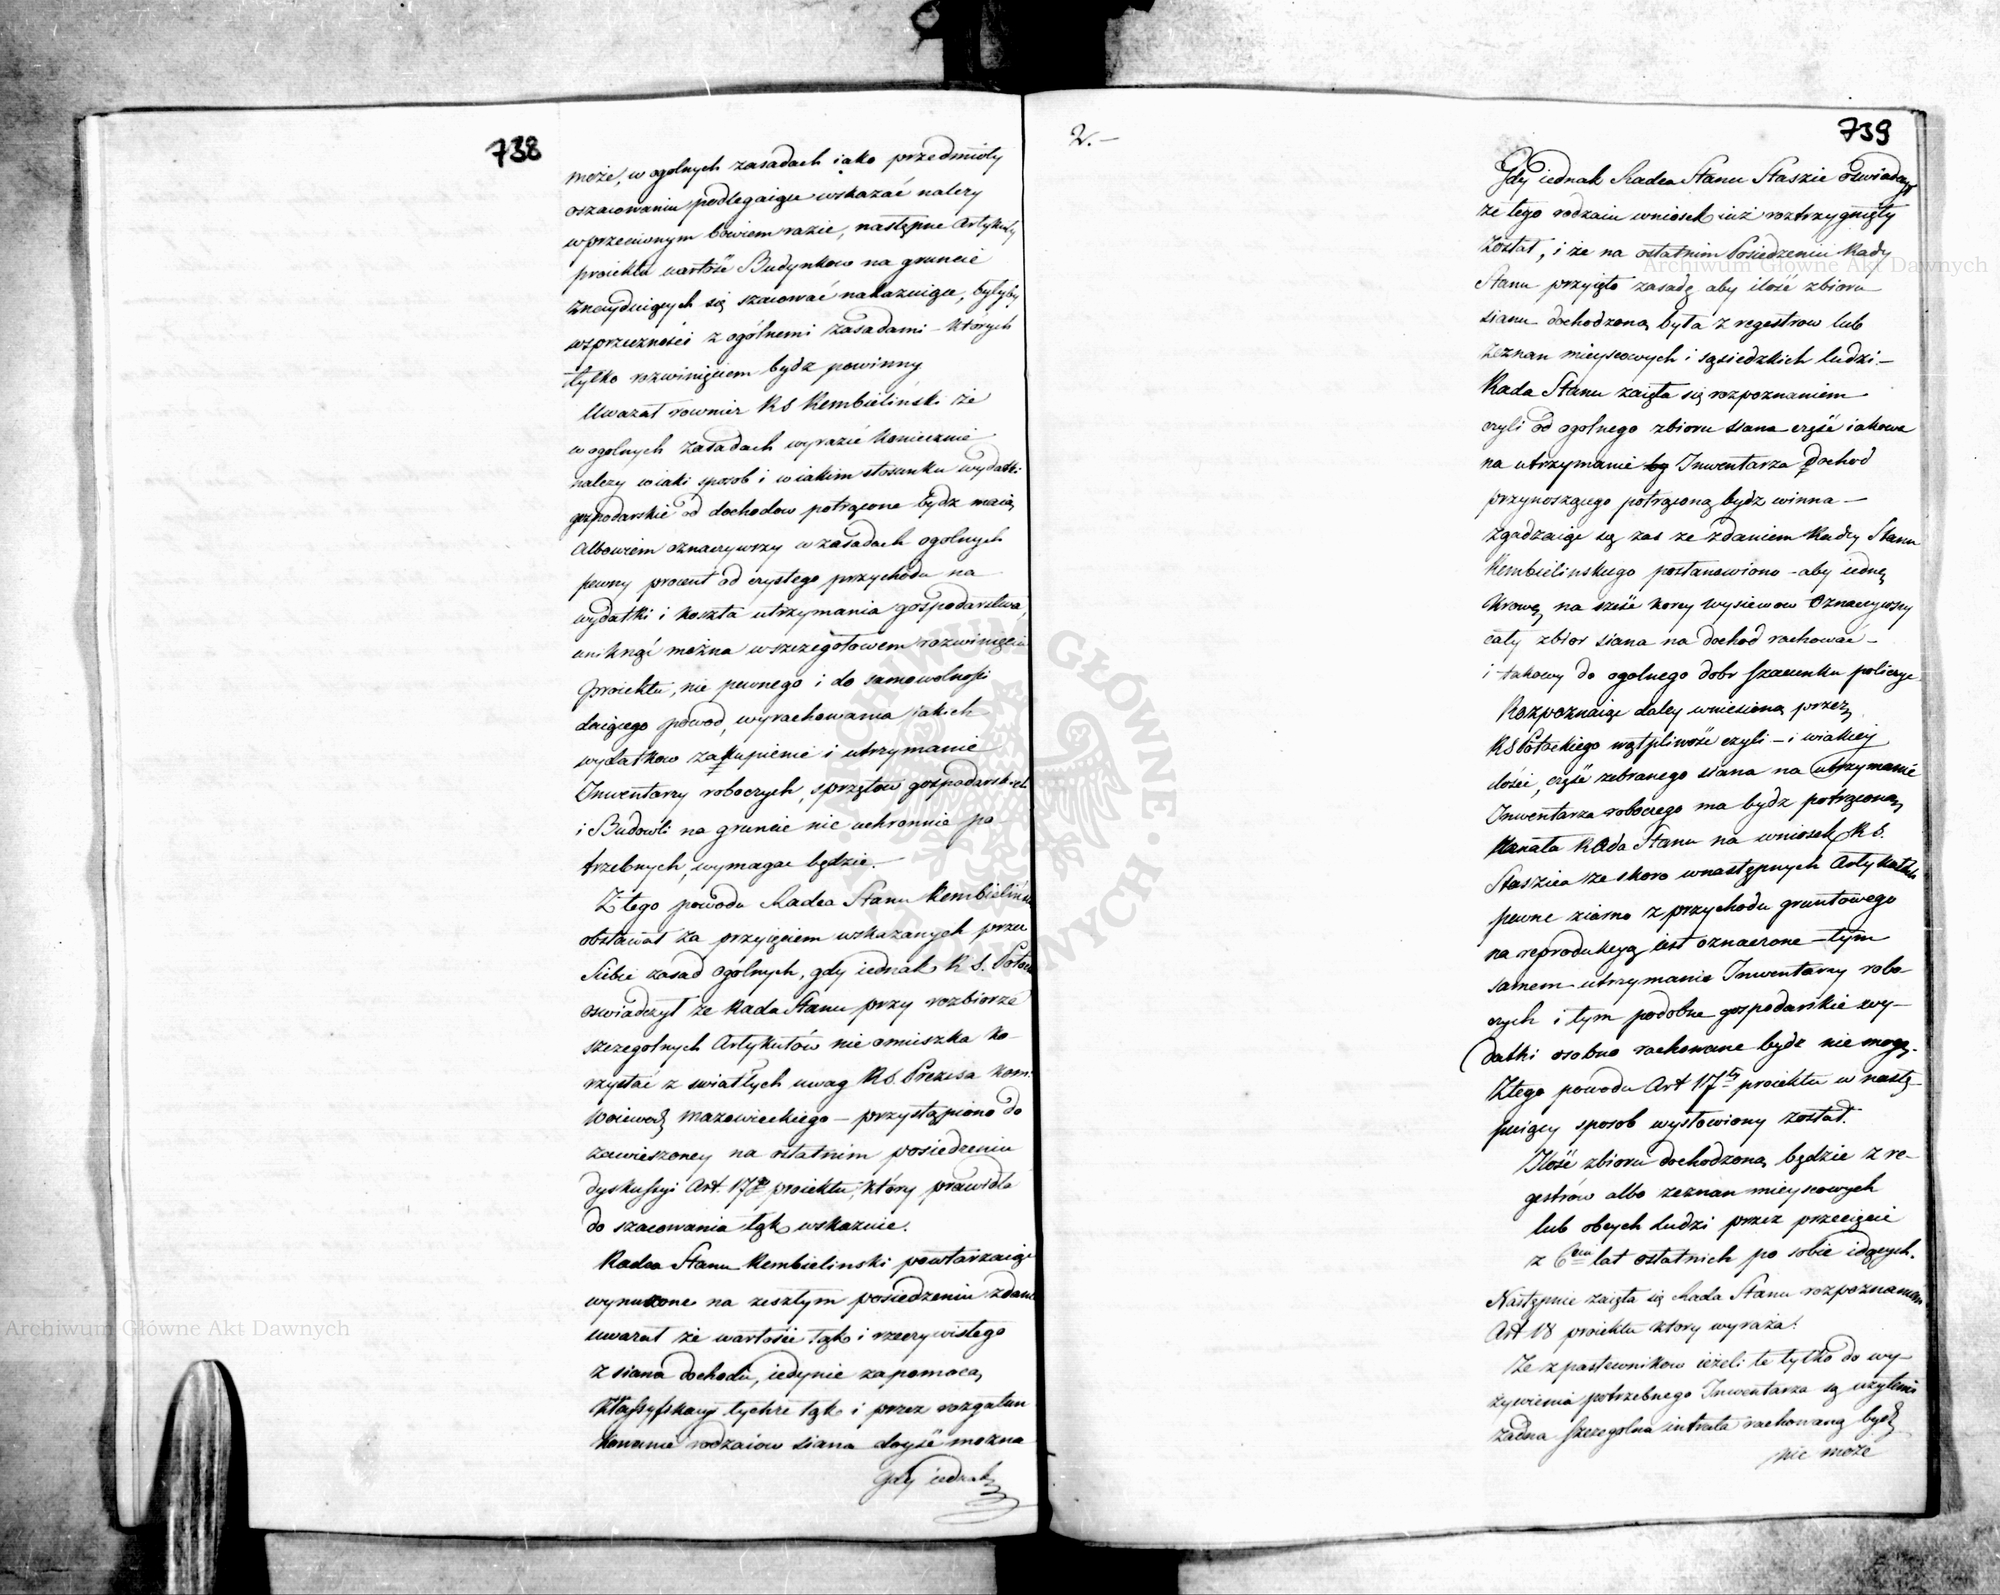 738
może, w ogolnych zasadach iako przedmioty
oszacowaniu podlegaiące wskazać nalezy
w przeciwnym bowiem razie, następne Artykuły
proiektu wartość Budynkow na gruncie
znayduiących się szacować nakazuiące, byłyby
w sprzeczności z ogólnemi zasadami – których
tylko rozwinięciem bydź powinny
Uwazał rownież RS Rembieliński że
w ogolnych zasadach wyrazić koniecznie
nalezy w iaki sposob i w iakim stosunku wydatki
gospodarskie od dochodow potrącone bydz maią
Albowiem oznaczywszy w zasadach ogolnych
pewny procent od czystego przychodu na
wydatki i koszta utrzymania gospodarstwa,
uniknąć można w szczegołowem rozwinięciu
proiektu, nie pewnego i do samowolności
daiącego powod, wyrachowania iakich
wydatkow zakupienie i utrzymanie
Inwentarzy roboczych, sprzętow gospodarskich
i Budowli na gruncie nie uchronnie po–
trzebnych, wymagac będzie.–
Z tego powodu Radca Stanu Rembieliński
obstawał za przyięciem wskazanych przez
Siebie zasad Ogólnych, gdy iednak R. S. Potocki
oswiadczył że Rada Stanu przy rozbiorze
szczegolnych Artykułów nie omieszka ko–
rzystać z swiatłych uwag RS. Prezesa Kom:
Woiewodz Mazowieckiego – przystąpiono do
zawieszoney na ostatnim posiedzeniu
dyskussyi Art. 17go proiektu, który prawidła
do szacowania łąk wskazuie.
Radca Stanu Rembielinski powtarzaiąc
wynurzone na zeszłym posiedzeniu zdanie
uwazał że wartości łąk i rzeczywistego
z siana dochodu, iedynie za pomocą
Klassyfikacyi tychże łąk i przez rozgatun
kowanie rodzaiow siana doyść mozna
Gdy iednak
2.–
739
Gdy iednak Radca Stanu Staszic Oswiadczył
że tego rodzaiu wniosek iuż roztrzygnięty
został, i że na ostatnim Posiedzeniu Rady
Stanu przyięto zasadę aby ilość zbioru
sianu dochodzoną była z regestrow lub
zeznan mieyscowych i sąsiedzkich ludzi –
Rada Stanu zaięła się rozpoznaniem
czyli od ogolnego zbioru siana część iakowa
na utrzymanie Inwentarza dochod
przynoszącego potrąconą bydz winna –
Zgadzaiąc się zas ze zdaniem Radcy Stanu
Rembielinskiego postanowiono – aby iedną
Krowę na sześć korcy wysiewow Oznaczywszy
cały zbior siana na dochod rachować –
i takowy do ogolnego dobr szacunku policzyc
Rozpoznaiąc daley wniesioną przez
RS Potockiego wątpliwość czyli – i w iakiey
ilości, część zebranego siana na utrzymanie
Inwentarza roboczego ma bydz potrąconą
Uznała Rada Stanu na wniosek RS.
Staszica że skoro w następnych Artykułach
pewne ziarno z przychodu gruntowego
na reprodukcyą iest oznaczone – tym
samem utrzymanie Inwentarzy robo–
czych i tym podobne gospodarskie wy–
datki osobno rachowane bydz nie mogą.
Z tego powodu Art 17ty proiektu w nastę–
puiący sposob wysłowiony został.
Ilość zbioru dochodzoną będzie z re–
gestrów albo zeznan mieyscowych
lub obcych ludzi przez przecięcie
z 6ciu lat ostatnich po sobie idących.
Następnie zaięła się Rada Stanu rozpoznaniem
Art 18 proiektu ktory wyraża:
Że z pastewnikow ieżeli te tylko do wy–
żywienia potrzebnego Inwentarza są użytemi
żadna szczegolna intrata rachowaną bydź
nie może